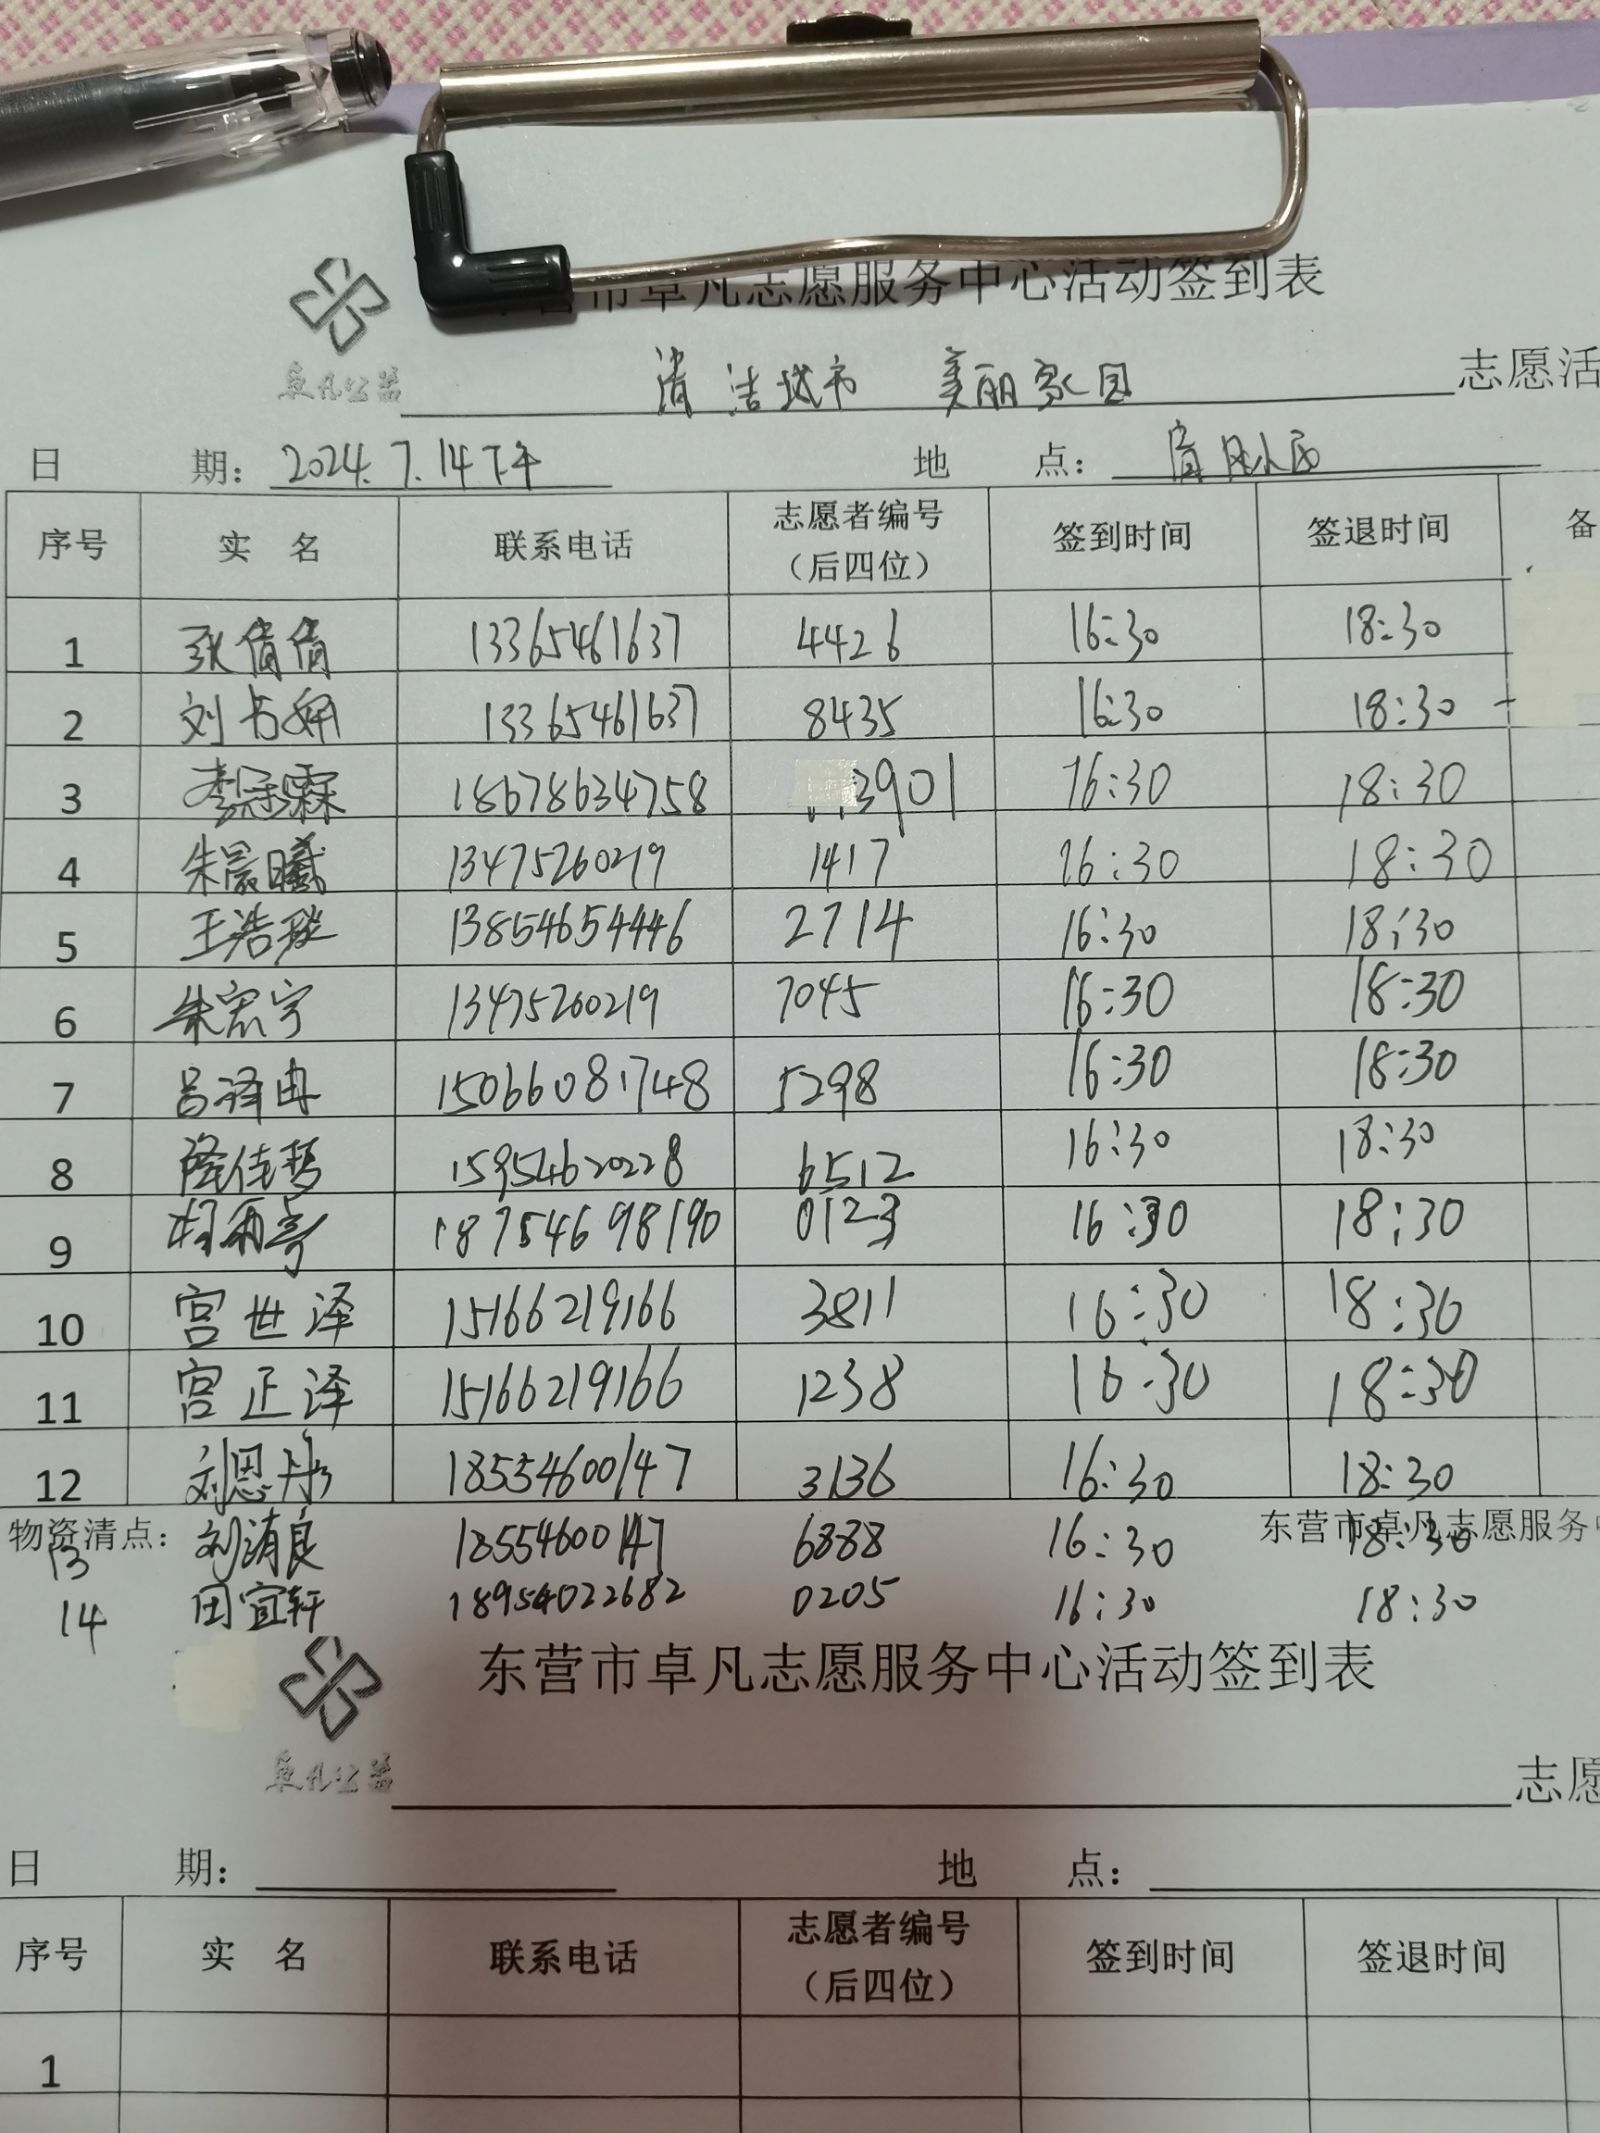 东营市卓凡志愿服务中心活动签到表
卓凡公益 清洁城市 美丽家园 志愿活
日 期: 2024.7.14下午 地 点:
序号 实 名 联系电话 志愿者编号（后四位） 签到时间 签退时间 备
1 张倩倩 13365461637 4426 16:30 18:30
2 刘书妍 13365461637 8435 16:30 18:30
3 李冠霖 18678634758 3901 16:30 18:30
4 朱晨曦 13475260219 1417 16:30 18:30
5 王浩 13854654446 2714 16:30 18:30
6 朱宸宇 13475260219 7045 16:30 18:30
7 吕泽冉 15066081748 5298 16:30 18:30
8 隆佳 15954620228 6512 16:30 18:30
9 杨雨 18754698190 0123 16:30 18:30
10 宫世泽 15166219166 3811 16:30 18:30
11 宫正泽 15166219166 1238 16:30 18:30
12 刘恩彤 18554600147 3136 16:30 18:30
物资清点: 东营市卓凡志愿服务
13 刘清良 18554600147 6888 16:30 18:30
14 田宜轩 18954022682 0205 16:30 18:30
东营市卓凡志愿服务中心活动签到表
卓凡公益 志愿
日 期: 地 点:
序号 实 名 联系电话 志愿者编号（后四位） 签到时间 签退时间
1